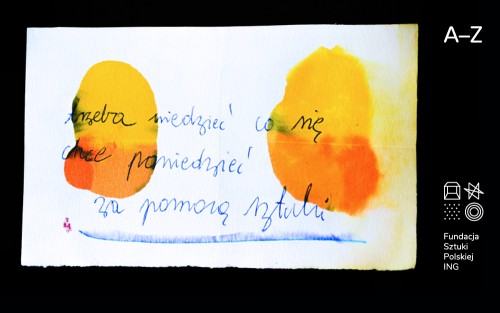 trzeba wiedzieć co się
chce powiedzieć
za pomocą sztuki
A–Z
Fundacja
Sztuki
Polskiej
ING